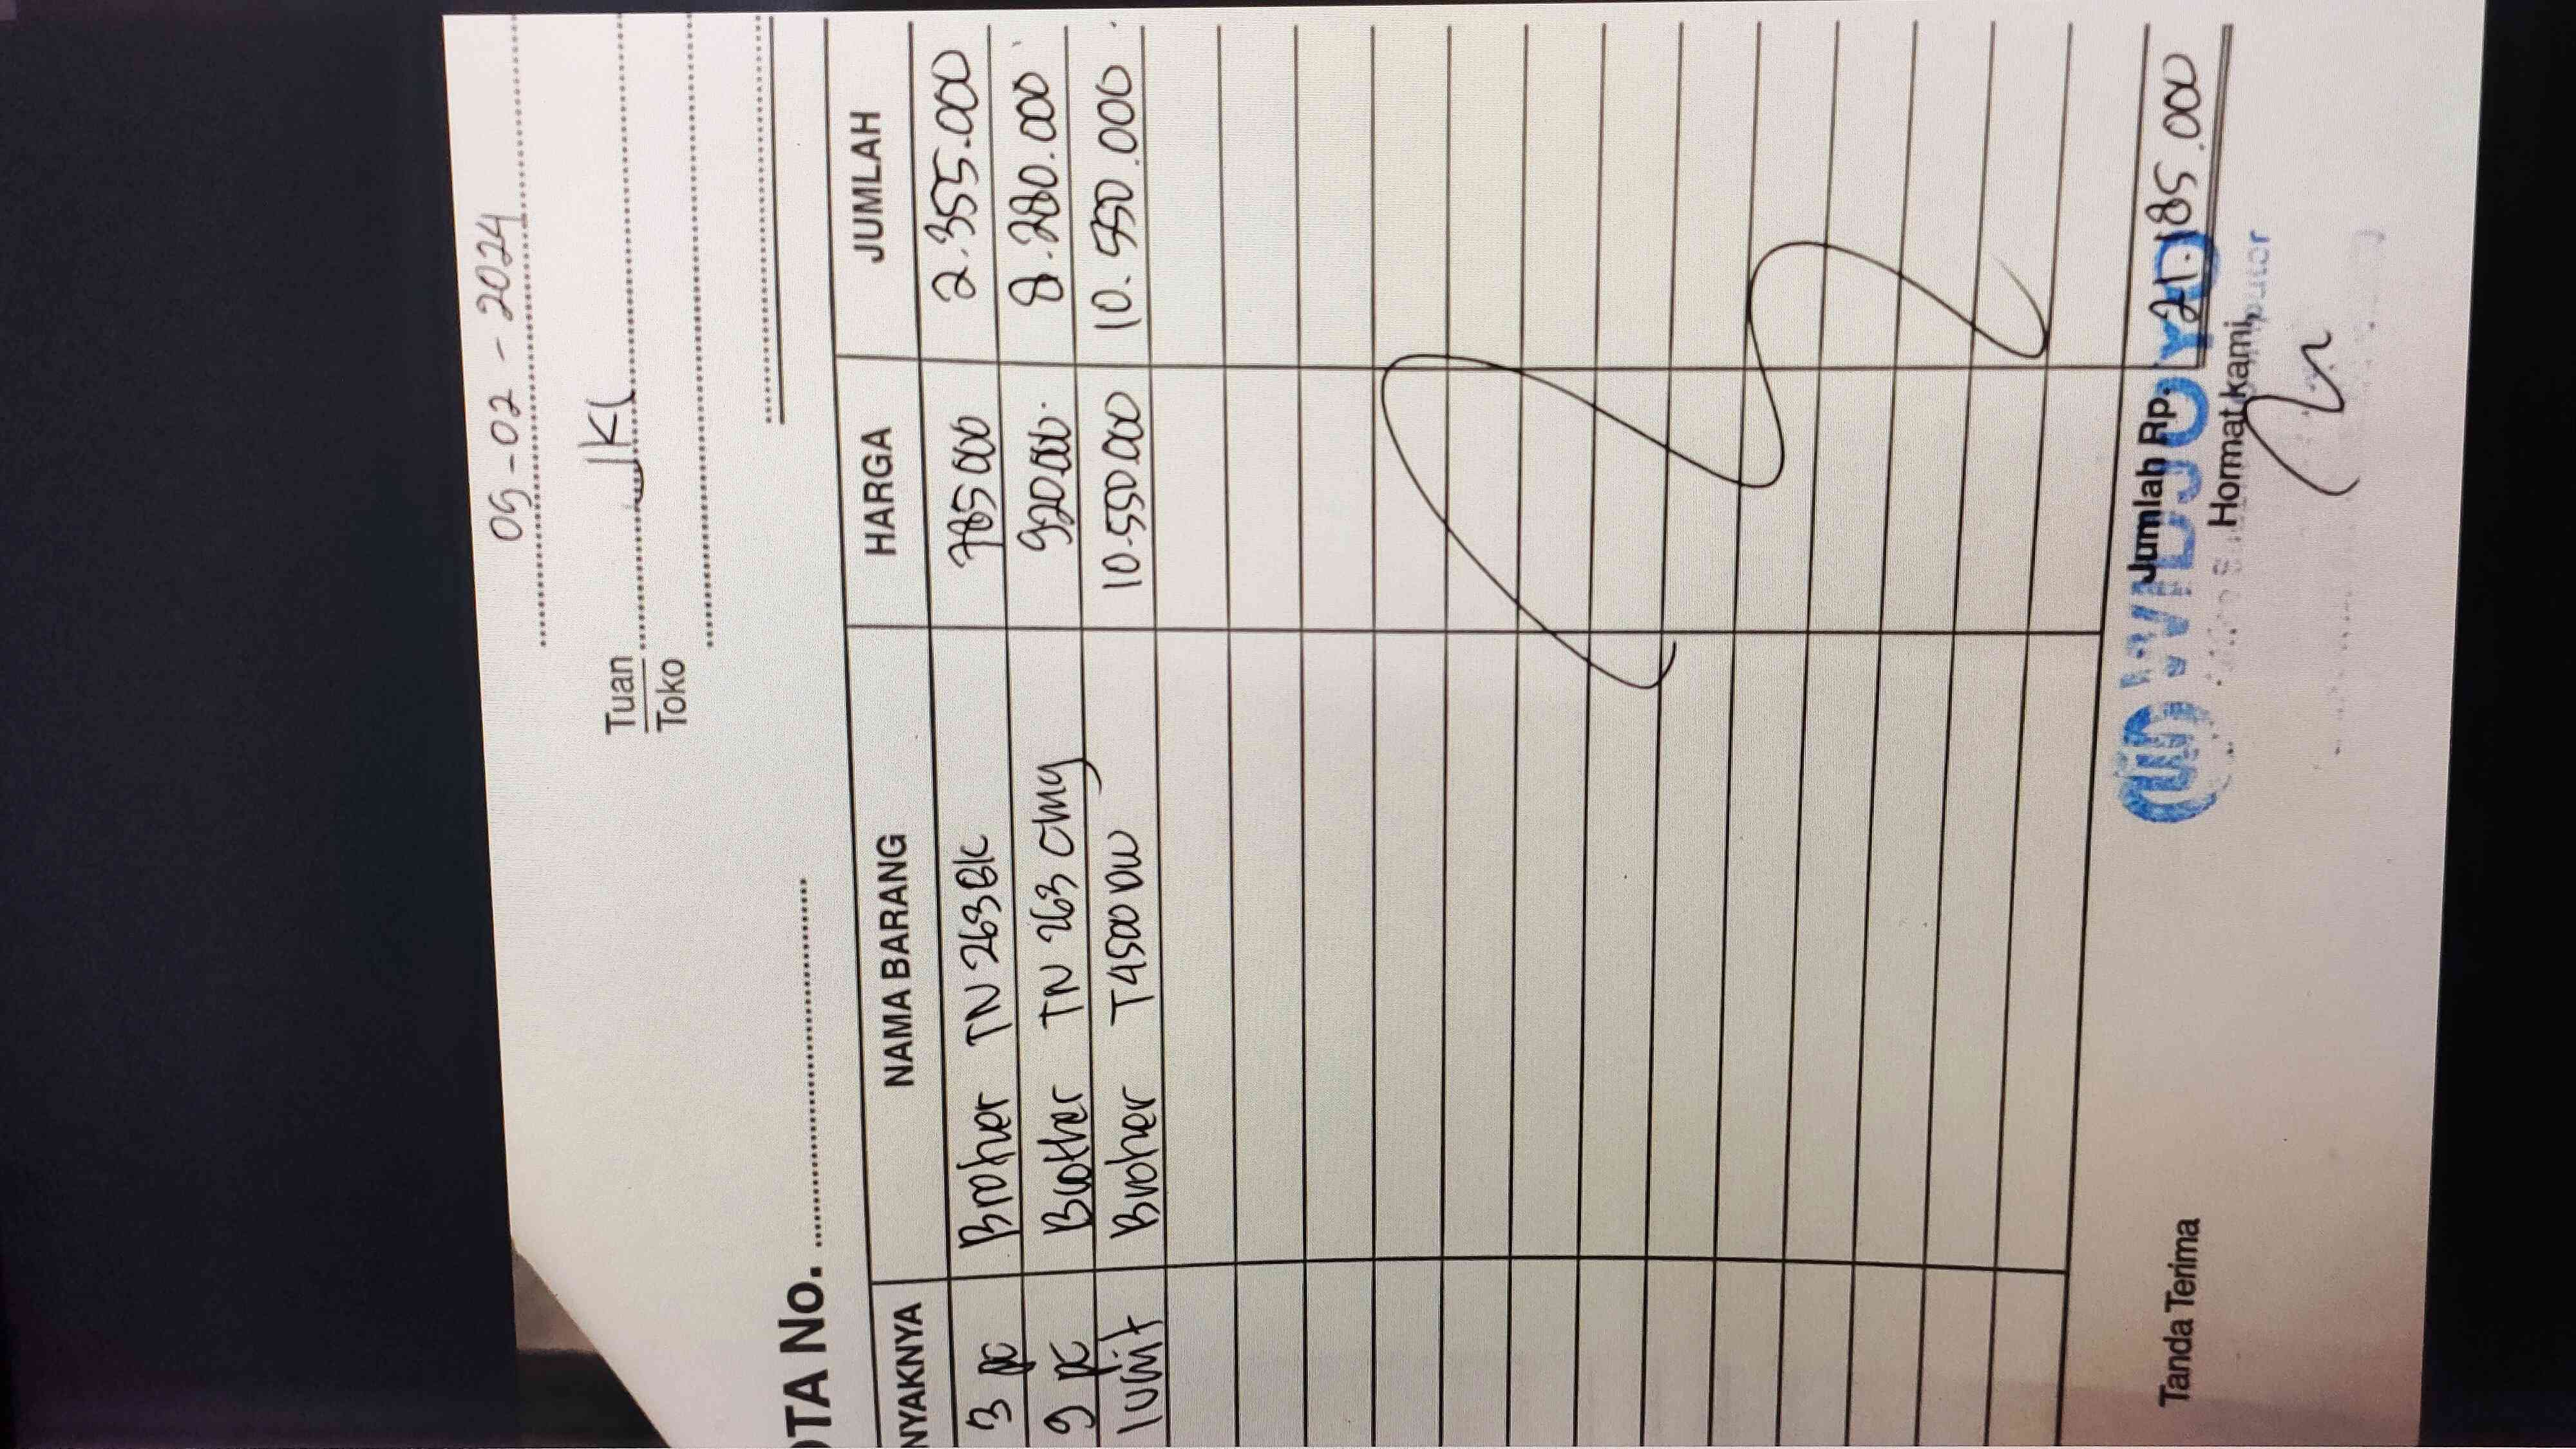 09-02-2024
Tuan JKL
Toko
OTA No.
NYAKNYA NAMA BARANG HARGA JUMLAH
3 pc Brother TN 263 BK 785000 2.355.000
9 pc Brother TN 263 CMY 920.000. 8.280.000
1 unit Brother T4500 DW 10.550.000 10.550.000
Jumlah Rp. 21.185.000
WIDJOYO
Tanda Terima Hormat kami,